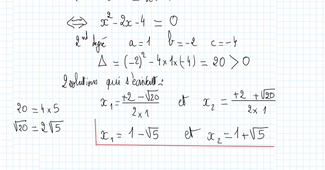 ⇔ x² - 2x - 4 = 0
2nd degré a = 1 b = -2 c = -4
Δ = (-2)² - 4×1×(-4) = 20 > 0
2 solutions qui s'écrivent :
x₁ = (+2 - √20)/(2×1) et x₂ = (+2 + √20)/(2×1)
20 = 4×5
√20 = 2√5
x₁ = 1 - √5 et x₂ = 1 + √5